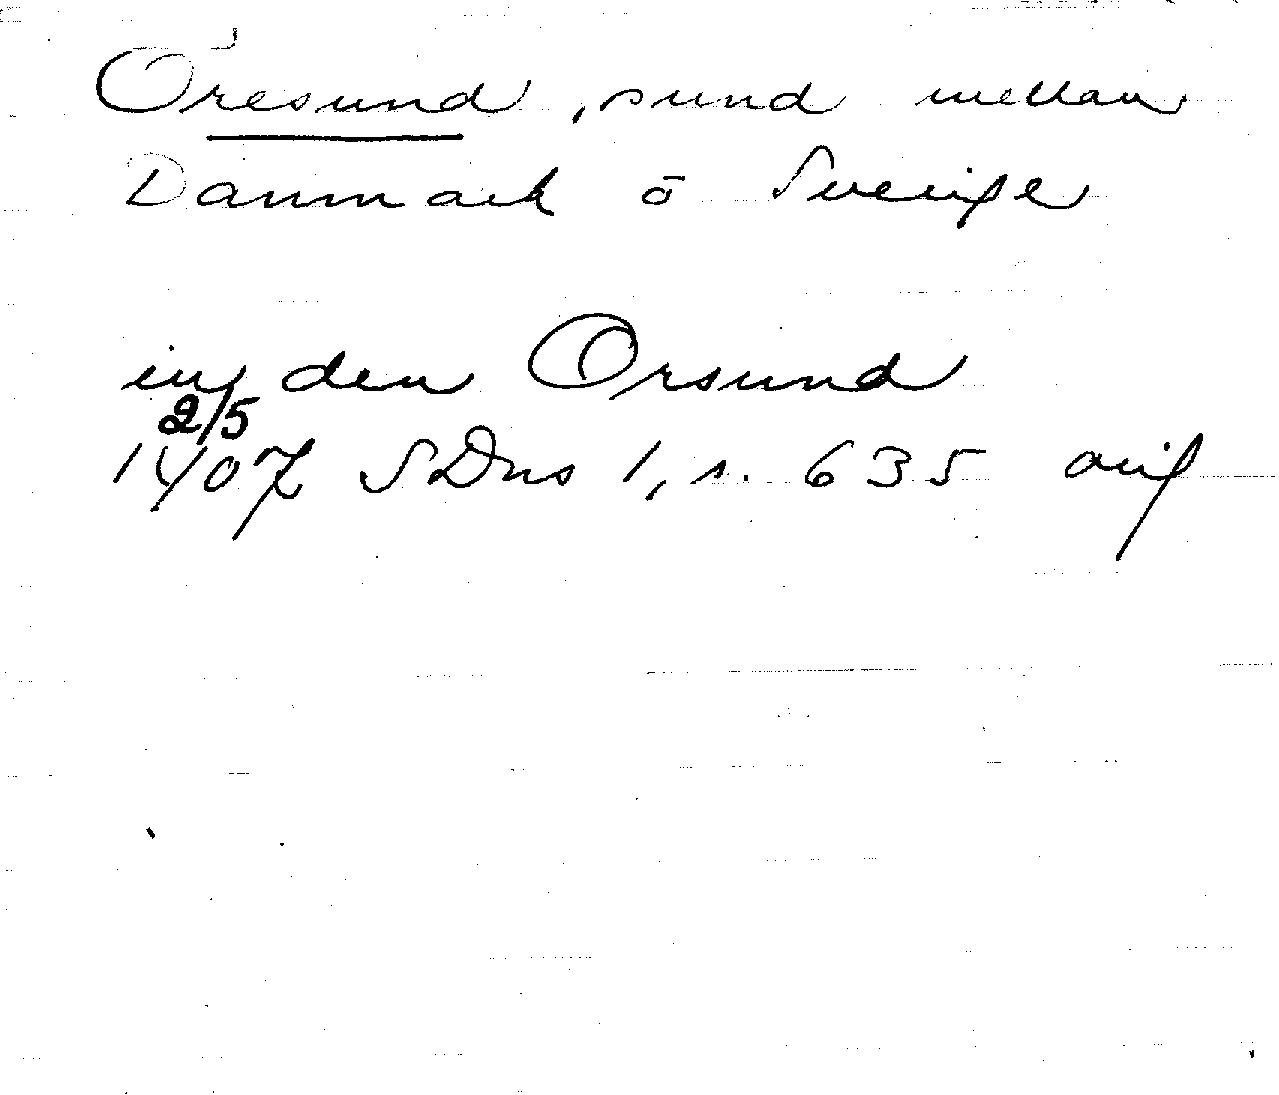 Öresund, sund mellan
Danmark o Sverige
in den Orsund
2/5
1407 SDns 1, s. 635 orig